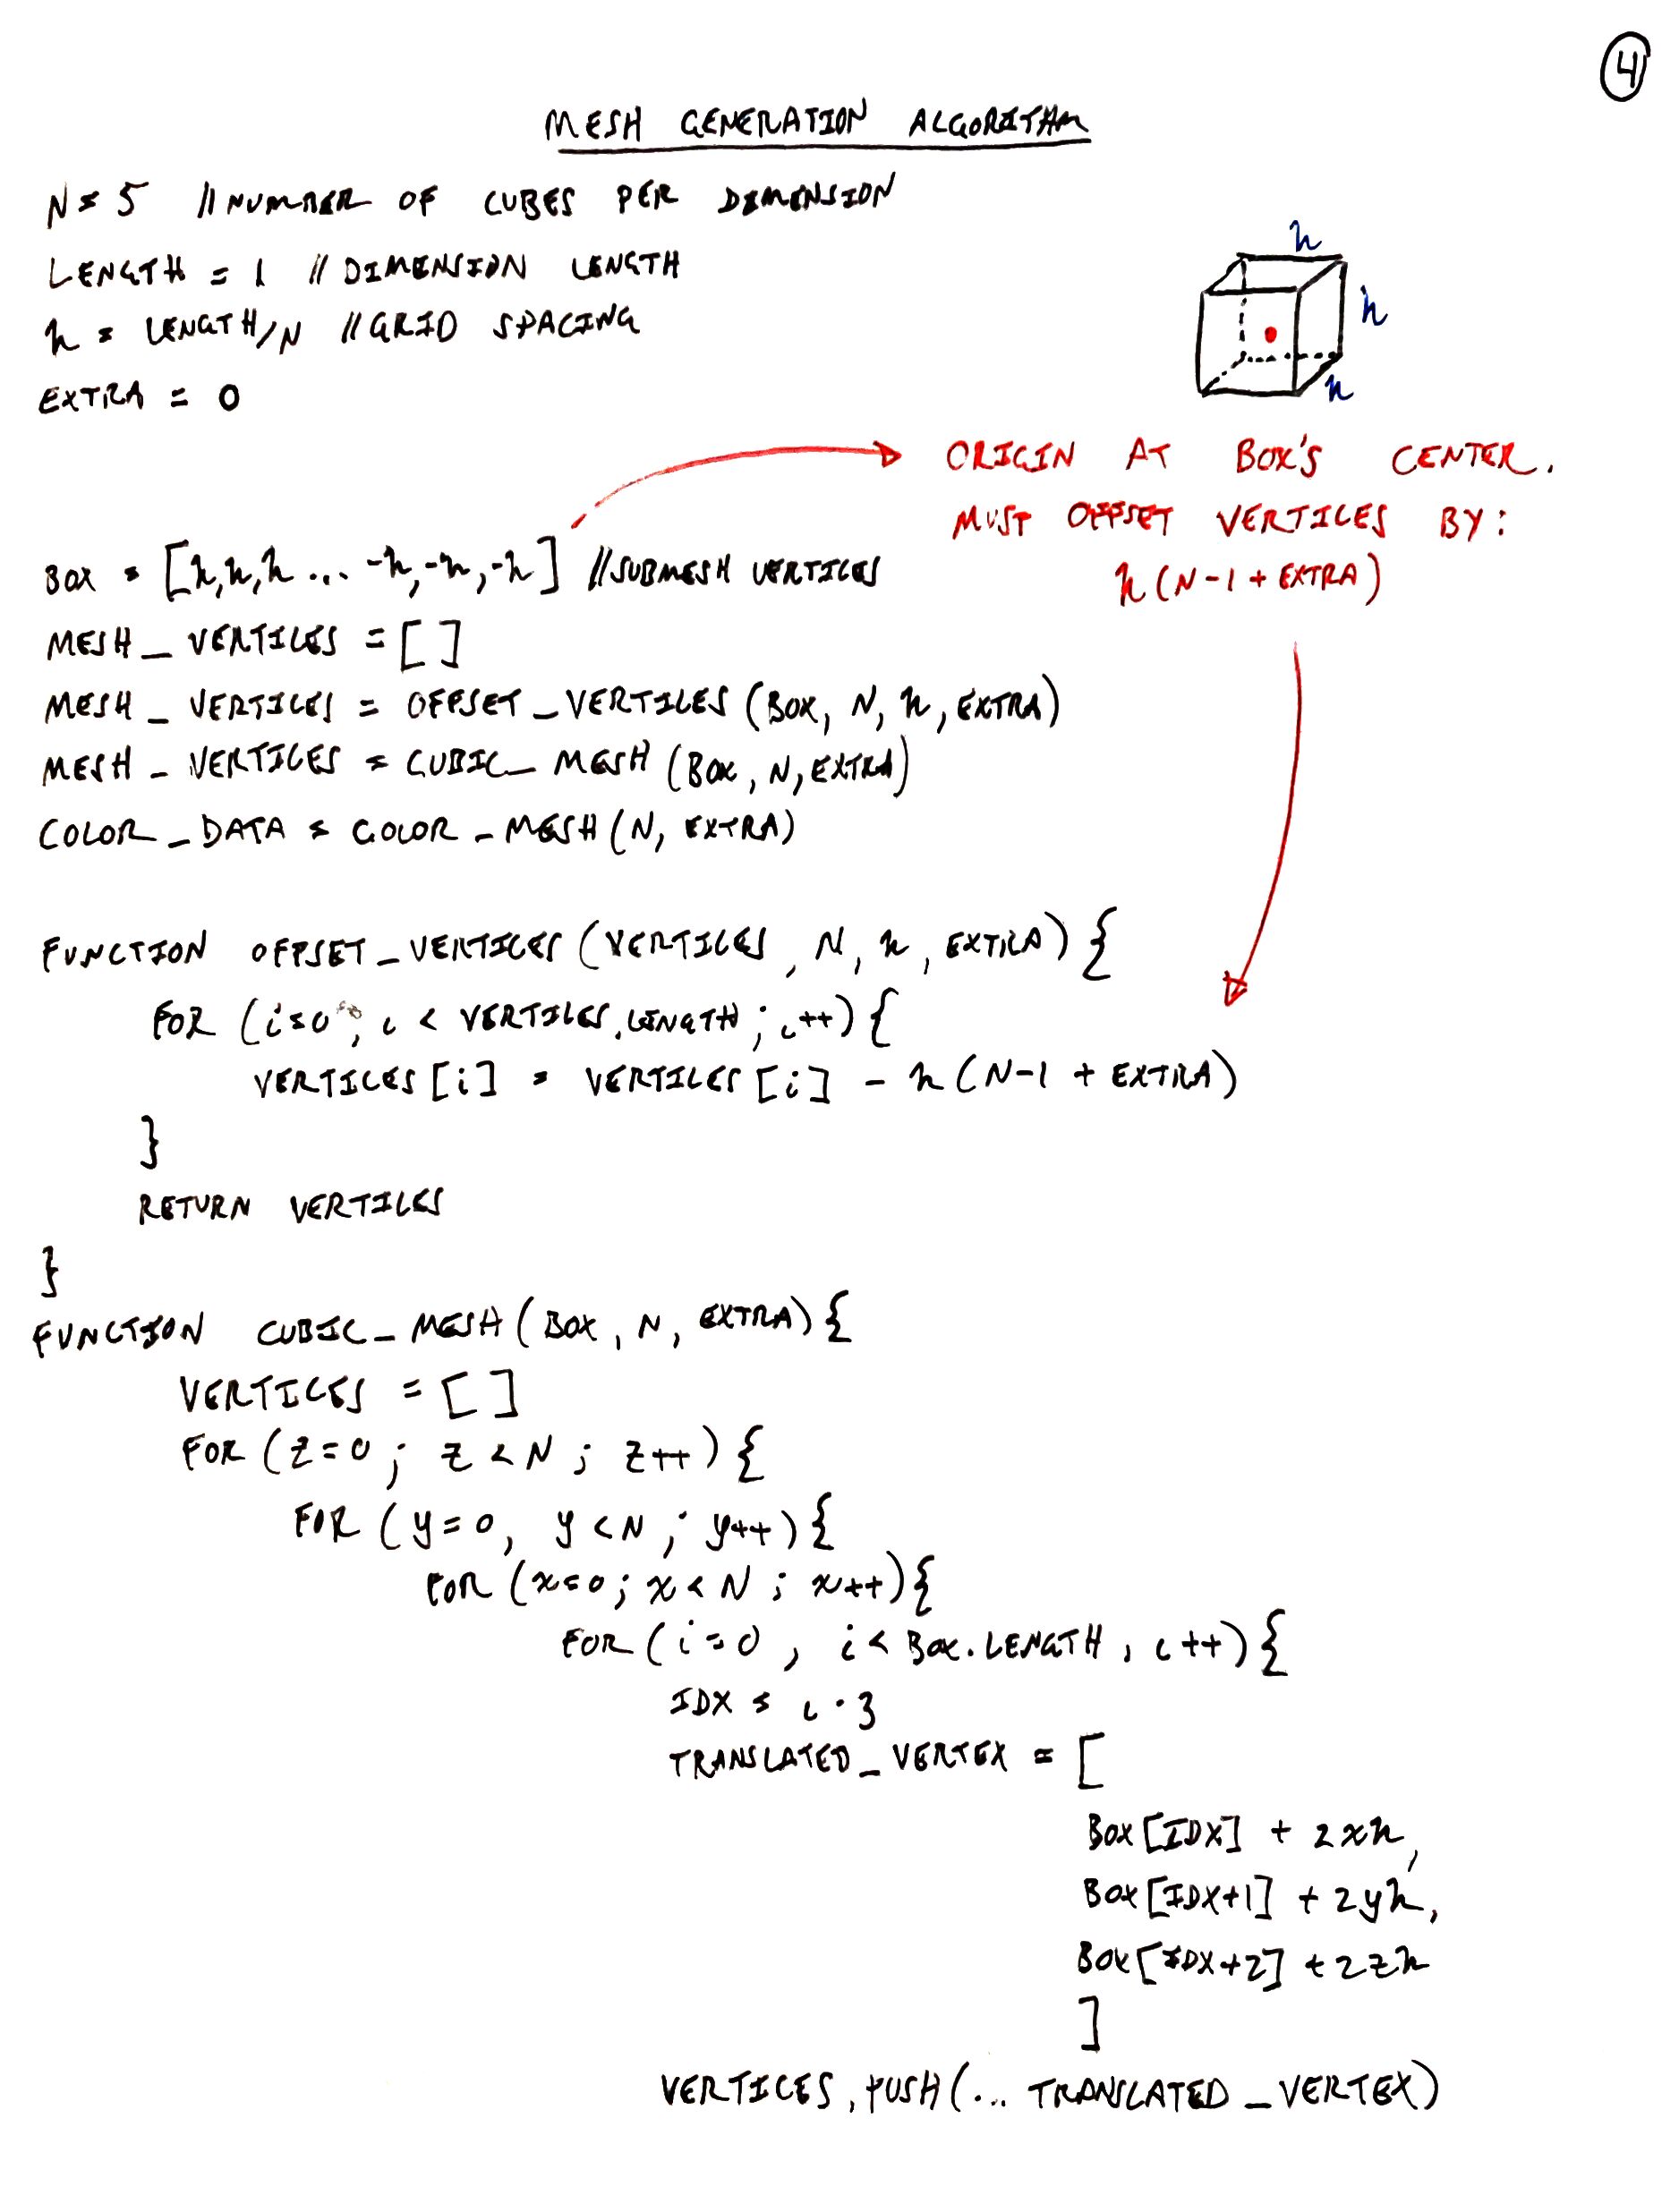 4
MESH GENERATION ALGORITHM
N = 5 // NUMBER OF CUBES PER DIMENSION
LENGTH = 1 // DIMENSION LENGTH
h = LENGTH/N // GRID SPACING
EXTRA = 0
h
h
h
ORIGIN AT BOX'S CENTER.
MUST OFFSET VERTICES BY:
h(N-1 + EXTRA)
BOX = [h,h,h ... -h,-h,-h] // SUBMESH VERTICES
MESH_VERTICES = []
MESH_VERTICES = OFFSET_VERTICES (BOX, N, h, EXTRA)
MESH_VERTICES = CUBIC_MESH (BOX, N, EXTRA)
COLOR_DATA = COLOR_MESH (N, EXTRA)
FUNCTION OFFSET_VERTICES (VERTICES, N, h, EXTRA) {
FOR (i=0; i < VERTICES.LENGTH; i++) {
VERTICES[i] = VERTICES[i] - h(N-1 + EXTRA)
}
RETURN VERTICES
}
FUNCTION CUBIC_MESH (BOX, N, EXTRA) {
VERTICES = []
FOR (z=0; z < N; z++) {
FOR (y=0, y < N; y++) {
FOR (x=0; x < N; x++) {
FOR (i=0, i < BOX.LENGTH, i++) {
IDX = i · 3
TRANSLATED_VERTEX = [
BOX[IDX] + 2xh,
BOX[IDX+1] + 2yh,
BOX[IDX+2] + 2zh
]
VERTICES.PUSH(... TRANSLATED_VERTEX)